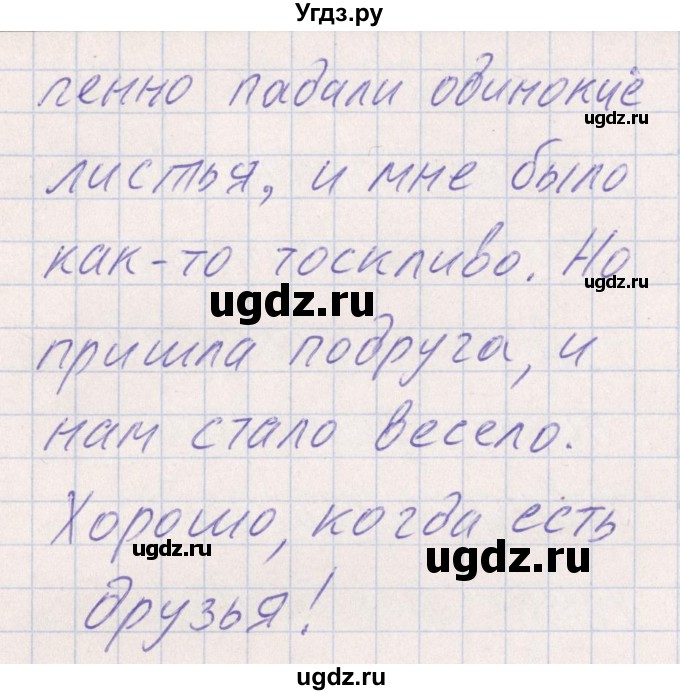 Угдз.ру
ленно падали одинокие
ugdz.ru
листья, и мне было
как-то тоскливо. Но
ugdz.ru
ugdz.ru
пришла подруга, и
нам стало весело.
Хорошо, когда есть
ugdz.ru
ugdz.ru
друзья!
ugdz.ru